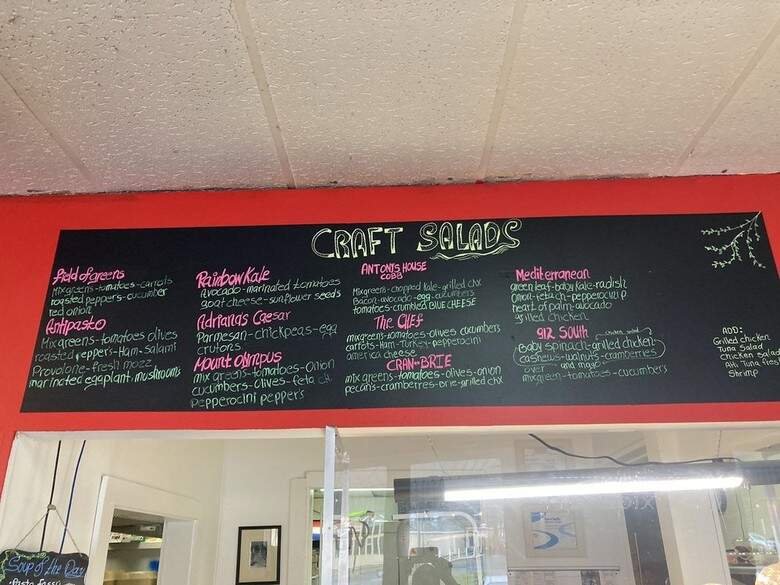 CRAFT SALADS
Field of greens
Mixgreens-tomatoes-carrots
roasted peppers-cucumber
red onion
Antipasto
Mixgreens-tomatoes olives
roasted peppers-Ham-Salami
Provalone-fresh mozz
marinated eggplant-mushrooms
Rainbow Kale
Avocado-marinated tomatoes
goat cheese-sunflower seeds
Adrianas Caesar
Parmesan-chickpeas-egg
crutons
Mount olimpus
mix greens-tomatoes-onion
cucumbers-olives-feta ch
pepperocini peppers
ANTONYS HOUSE
COBB
Mixgreens-chopped kale-grilled chx
Bacon-avocado-egg cucumbers
tomatoes-crumbled BLUE CHEESE
The CLEF
mixgreens-tomatoes-olives cucumbers
carrots-Ham-Turkey-pepperocini
america cheese
CRAN-BRIE
mix greens-tomatoes-olives-onion
pecans-cranberries-brie-grilled chx
Mediterranean
green leaf-baby kale-radish
onion-feta ch-pepperocini p
heart of palm-avocado
grilled chicken
912 South
chicken salad
baby spinach-grilled chicken-
cashews-walnuts-cranberries
over and mayo
mixgreen-tomatoes-cucumbers
ADD:
Grilled chicken
Tuna Salad
chicken salad
Ahi Tuna fres
Shrimp
Soup of the Day